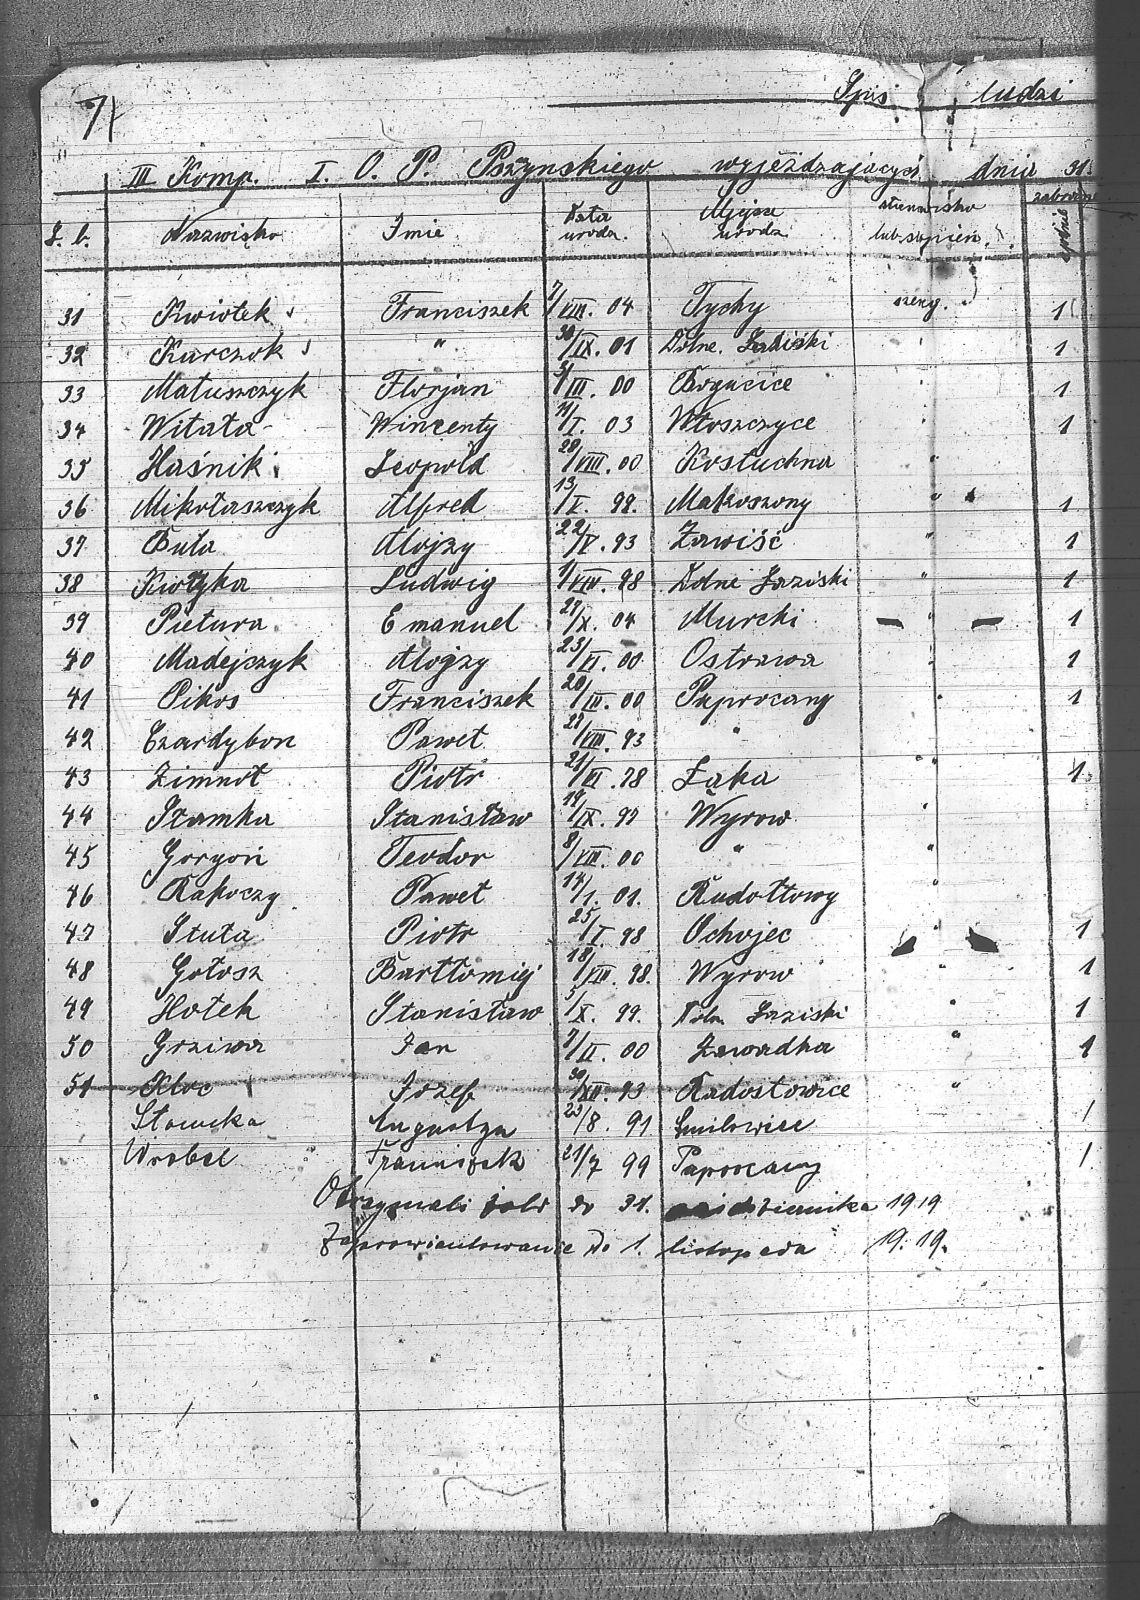 71
Spis ludzi
III Komp. I. O. P. Pszynskiego wyjeżdzających dnia 31
L. b. Nazwisko Imię Data urodz. Miejsce urodz. stanowisko lub stopień. zabrane
31 Kwiotek Franciszek 7/VIII. 04 Tychy szereg. 1
32 Karczok " 30/IX. 01 Dolne. Łaziski " 1
33 Matuszczyk Florjan 5/III. 00 Bogucice " 1
34 Witata Wincenty 11/I. 03 Włoszczyce " 1
35 Haśnik Leopold 28/VIII. 00 Kostuchna "
36 Mikołaszczyk Alfred 13/V. 99. Makoszony " 1
37 Buta Alojzy 22/V. 93 Zawiść " 1
38 Kwotyka Ludwig 1/VIII. 98 Dolne Łaziski " 1
39 Pietura Emanuel 27/X. 04 Murcki — " — 1
40 Madejczyk Alojzy 23/VI. 00 Ostrawa " 1
41 Pikos Franciszek 20/III. 00 Paprocany " 1
42 Czardybon Paweł 27/VIII. 93 "
43 Zimnot Piotr 21/VI. 98 Łąka " 1
44 Szamka Stanisław 19/IX. 99 Wyrow "
45 Goryoń Teodor 8/VIII. 00 " "
46 Rakoczy Paweł 14/1. 01. Rudołtowy "
47 Stuta Piotr 25/I. 98 Ochojec " 1
48 Gołosz Bartłomiej 18/VIII. 98. Wyrow " 1
49 Hołek Stanisław 5/X. 99. Doln. Łaziski " 1
50 Grziwa Jan 7/II. 00 Zawadka " 1
51 Kloc Józef 30/XII. 93 Radostowice "
Stawicka Augustyn 23/8. 91 Smilowice 1
Wrobel Franciszek 21/7 99 Paprocany 1
Otrzymali żołd do 31. października 1919
Zaprowiantowanie do 1. listopada 19.19.